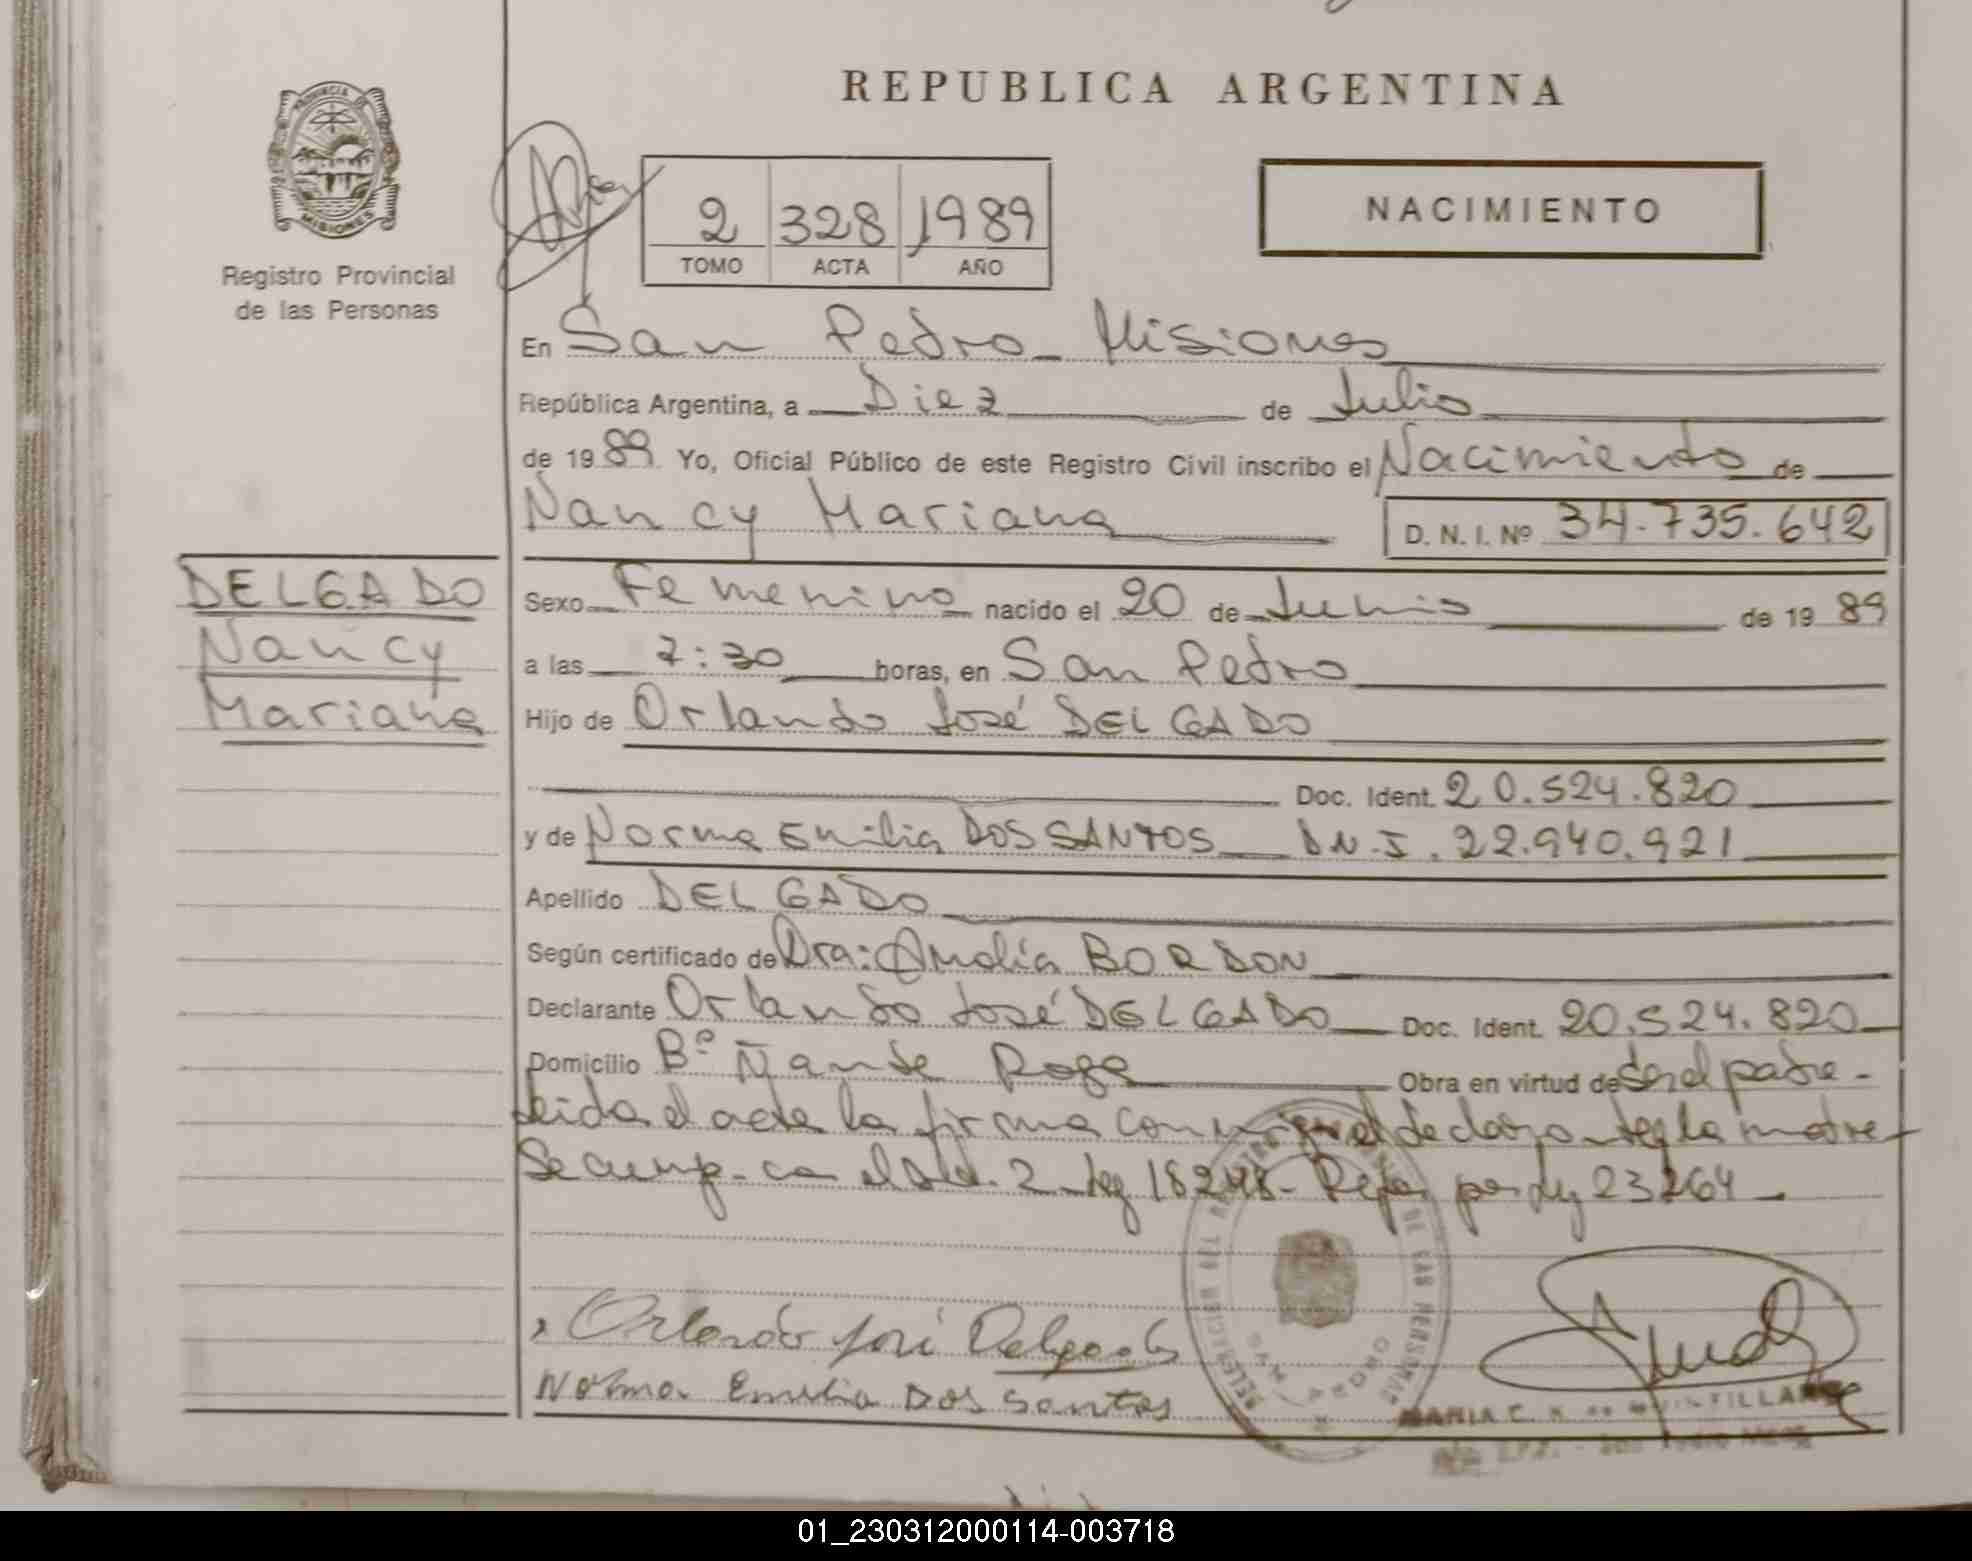 REPUBLICA ARGENTINA
PROVINCIA DE
MISIONES
Registro Provincial
de las Personas
2 328 1989
TOMO ACTA AÑO
NACIMIENTO
En San Pedro - Misiones
República Argentina, a Diez de Julio
de 1989 Yo, Oficial Público de este Registro Civil inscribo el Nacimiento de
Nancy Mariana D. N. I. Nº 34.735.642
DELGADO
Nancy
Mariana
Sexo Femenino nacido el 20 de Junio de 1989
a las 7:30 horas, en San Pedro
Hijo de Orlando José DELGADO
Doc. Ident. 20.524.820
y de Norma Emilia DOS SANTOS D.N.I. 22.940.921
Apellido DELGADO
Según certificado de Dra: Amalia BORDON
Declarante Orlando José DELGADO Doc. Ident. 20.524.820
Domicilio Bº Ñande Roga Obra en virtud de Ser el padre -
Leida el acta la firma conmigo el declarante y la madre
Se cump. con el 2 ley 18248 - por ley 23264 -
Orlando José Delgado
Norma Emilia Dos Santos
DE LAS PERSONAS
MARIA C.
01_230312000114-003718